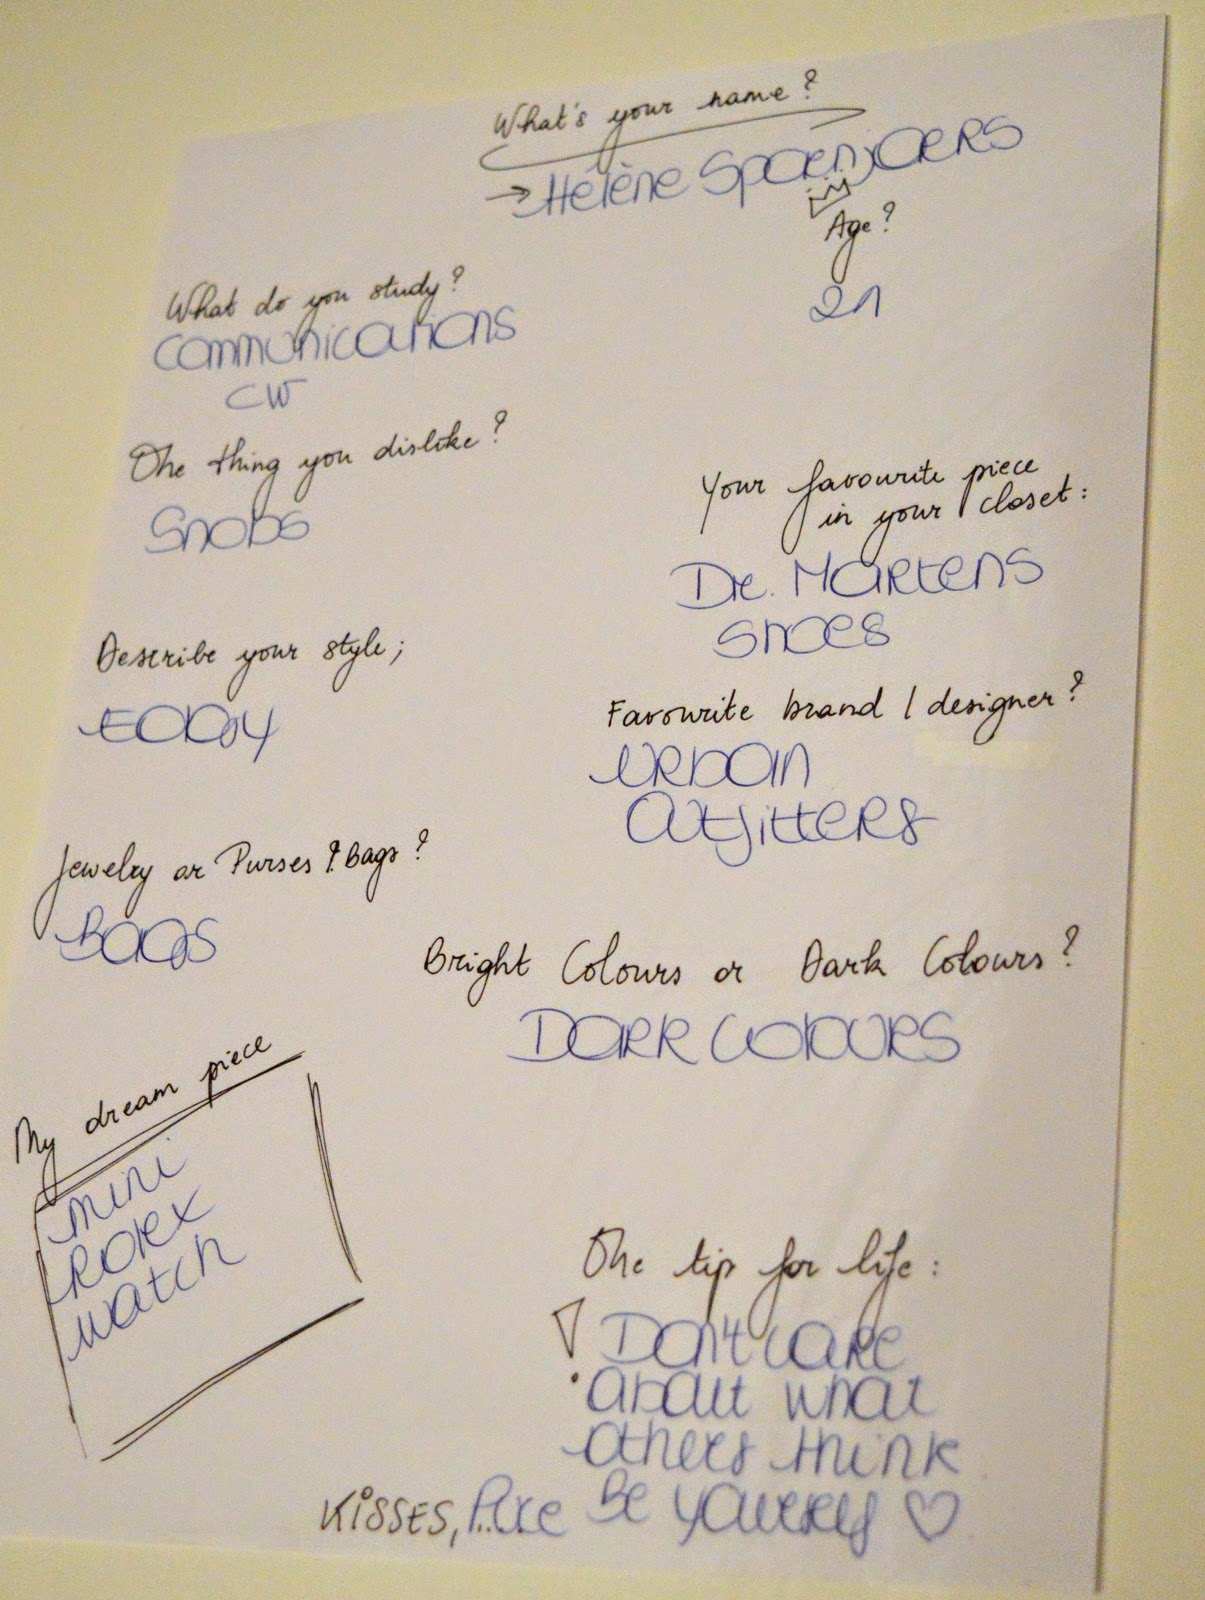 What's your name?
→ Hélène Spaenjaers
Age?
21
What do you study?
Communications
CW
One thing you dislike?
Snobs
Your favourite piece
in your closet:
Dr. Martens
shoes
Describe your style;
EDDY
Favourite brand / designer?
Urban
Outfitters
Jewelry or Purses & Bags?
BAGS
Bright Colours or Dark Colours?
DARK COLOURS
My dream piece
mini
Rolex
watch
One tip for life:
! Don't care
about what
others think
Be yourself ♡
KISSES,